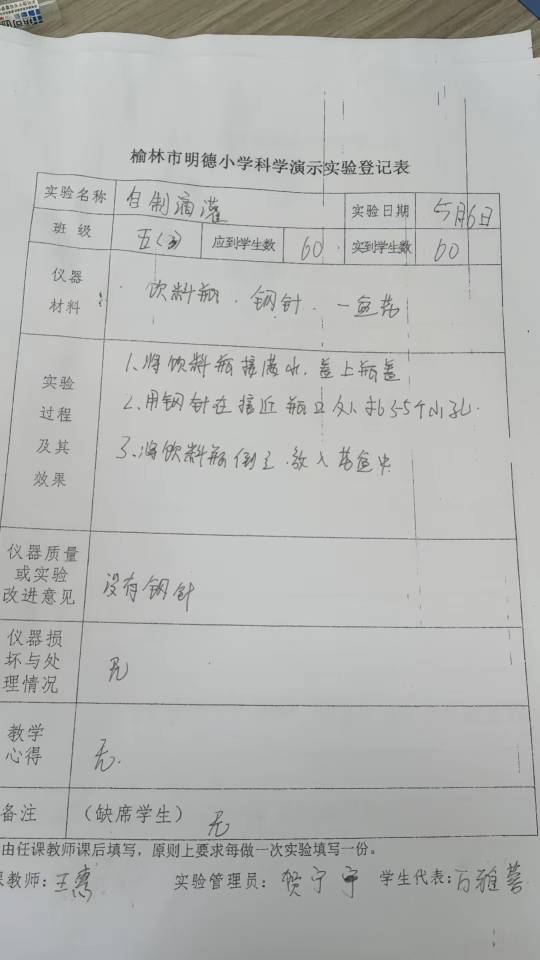 榆林市明德小学科学演示实验登记表
实验名称 自制滴灌 实验日期 5月6日
班级 五(3) 应到学生数 60 实到学生数 60
仪器材料 饮料瓶、钢针、一盆花
实验过程及其效果
1、将饮料瓶接满水,盖上瓶盖
2、用钢针在接近瓶口处扎3-5个小孔.
3、将饮料瓶倒立,放入花盆中
仪器质量或实验改进意见 没有钢针
仪器损坏与处理情况 无
教学心得 无.
备注 (缺席学生) 无
由任课教师课后填写,原则上要求每做一次实验填写一份。
课教师: 王 实验管理员: 贺宁宁 学生代表: 雅